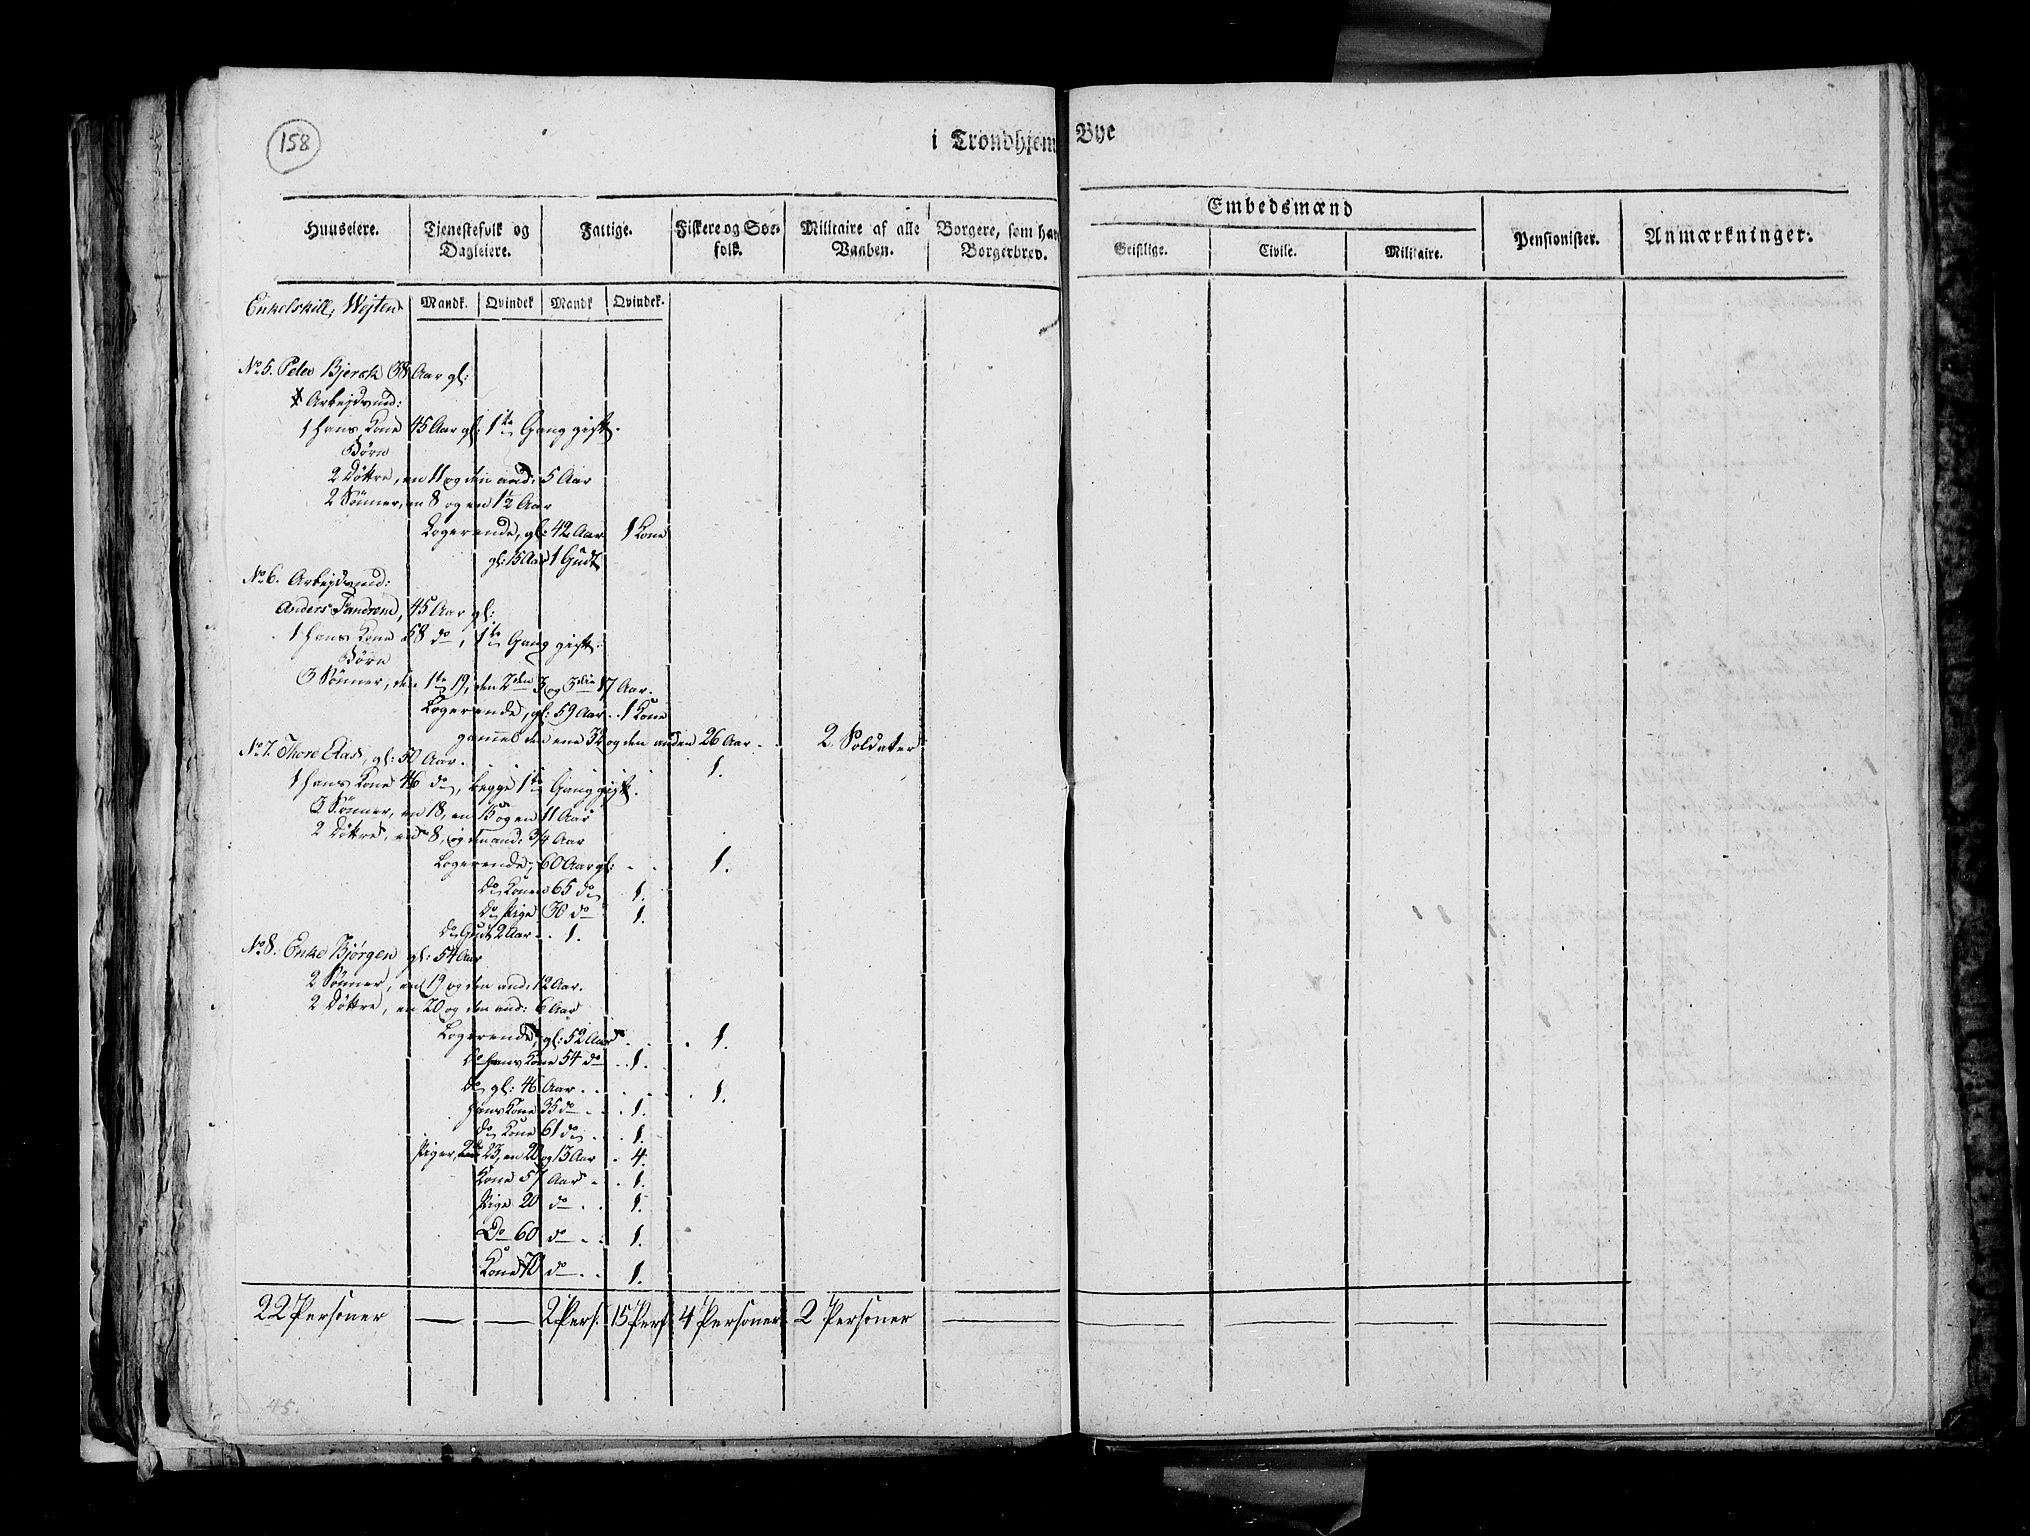 158
i Trondhjem Bye
Huuseiere.
Tjenestefolk og Dagleiere.
Fattige.
Fiskere og Søe-folk.
Militaire af alle Vaaben.
Borgere, som har Borgerbrev.
Embedsmænd
Geistlige.
Civile.
Militaire.
Pensionister.
Anmærkninger.
Mandk. Qvindek Mandk Qvindek.
Enkelskill, Wejten
No 5. Peter Bjerck 38 Aar gl:
Arbejdsmd:
1 hans Kone 45 Aar gl: 1te Gang gift.
Børn
2 Døttre, en 11 og den and: 5 Aar
2 Sønner, en 8 og en 1½ Aar
Logerende, gl: 42 Aar 1 Kone
gl: 15 Aar 1 Gudt
No 6. Arbejdsmd:
Anders, 45 Aar gl:
1 hans Kone 58 do, 1te Gang gift.
Børn
3 Sønner, den 1te 19, den 2den og 3die 17 Aar.
Logerende, gl: 59 Aar . . 1 Kone
gammel den ene 32 og den anden 26 Aar . 2 Soldater
No 7. Thore Elas, gl: 50 Aar. 1.
1 hans Kone 46 do, begge 1te Gang gift.
3 Sønner, en 18, en 15 og en 11 Aar
2 Døttre, en 8, og den and: 3/4 Aar
Logerende, 60 Aar gl: . . 1.
Do Kone 65 do 1.
Do Pige 30 do 1.
Do Gudt 2 Aar . . 1.
No 8. Enke Bjørgen gl: 54 Aar
2 Sønner, en 19 og den and: 12 Aar.
2 Døttre, en 20 og den and: 6 Aar
Logerende, gl: 52 Aar . . 1.
Do hans Kone 54 do . . 1.
Do gl: 46 Aar . . . 1.
hans Kone 35 do . . 1.
Do Kone 61 do . . 1.
Piger, 23, en 20 og 13 Aar . 4.
Kone 57 Aar . . 1.
Pige 20 do . . 1.
Do 60 do . . 1.
Kone 70 do . . 1.
22 Personer — — 2 Pers. 15 Pers 4 Personer 2 Personer — — — — —
45.